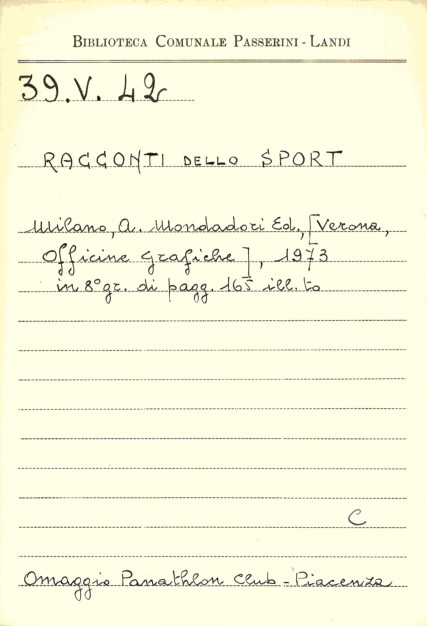 BIBLIOTECA COMUNALE PASSERINI - LANDI
39.V.42
RACCONTI DELLO SPORT
Milano, A. Mondadori Ed., [Verona,
Officine Grafiche], 1973
in 8° gr. di pagg. 165 ill.to
C
Omaggio Panathlon Club - Piacenza